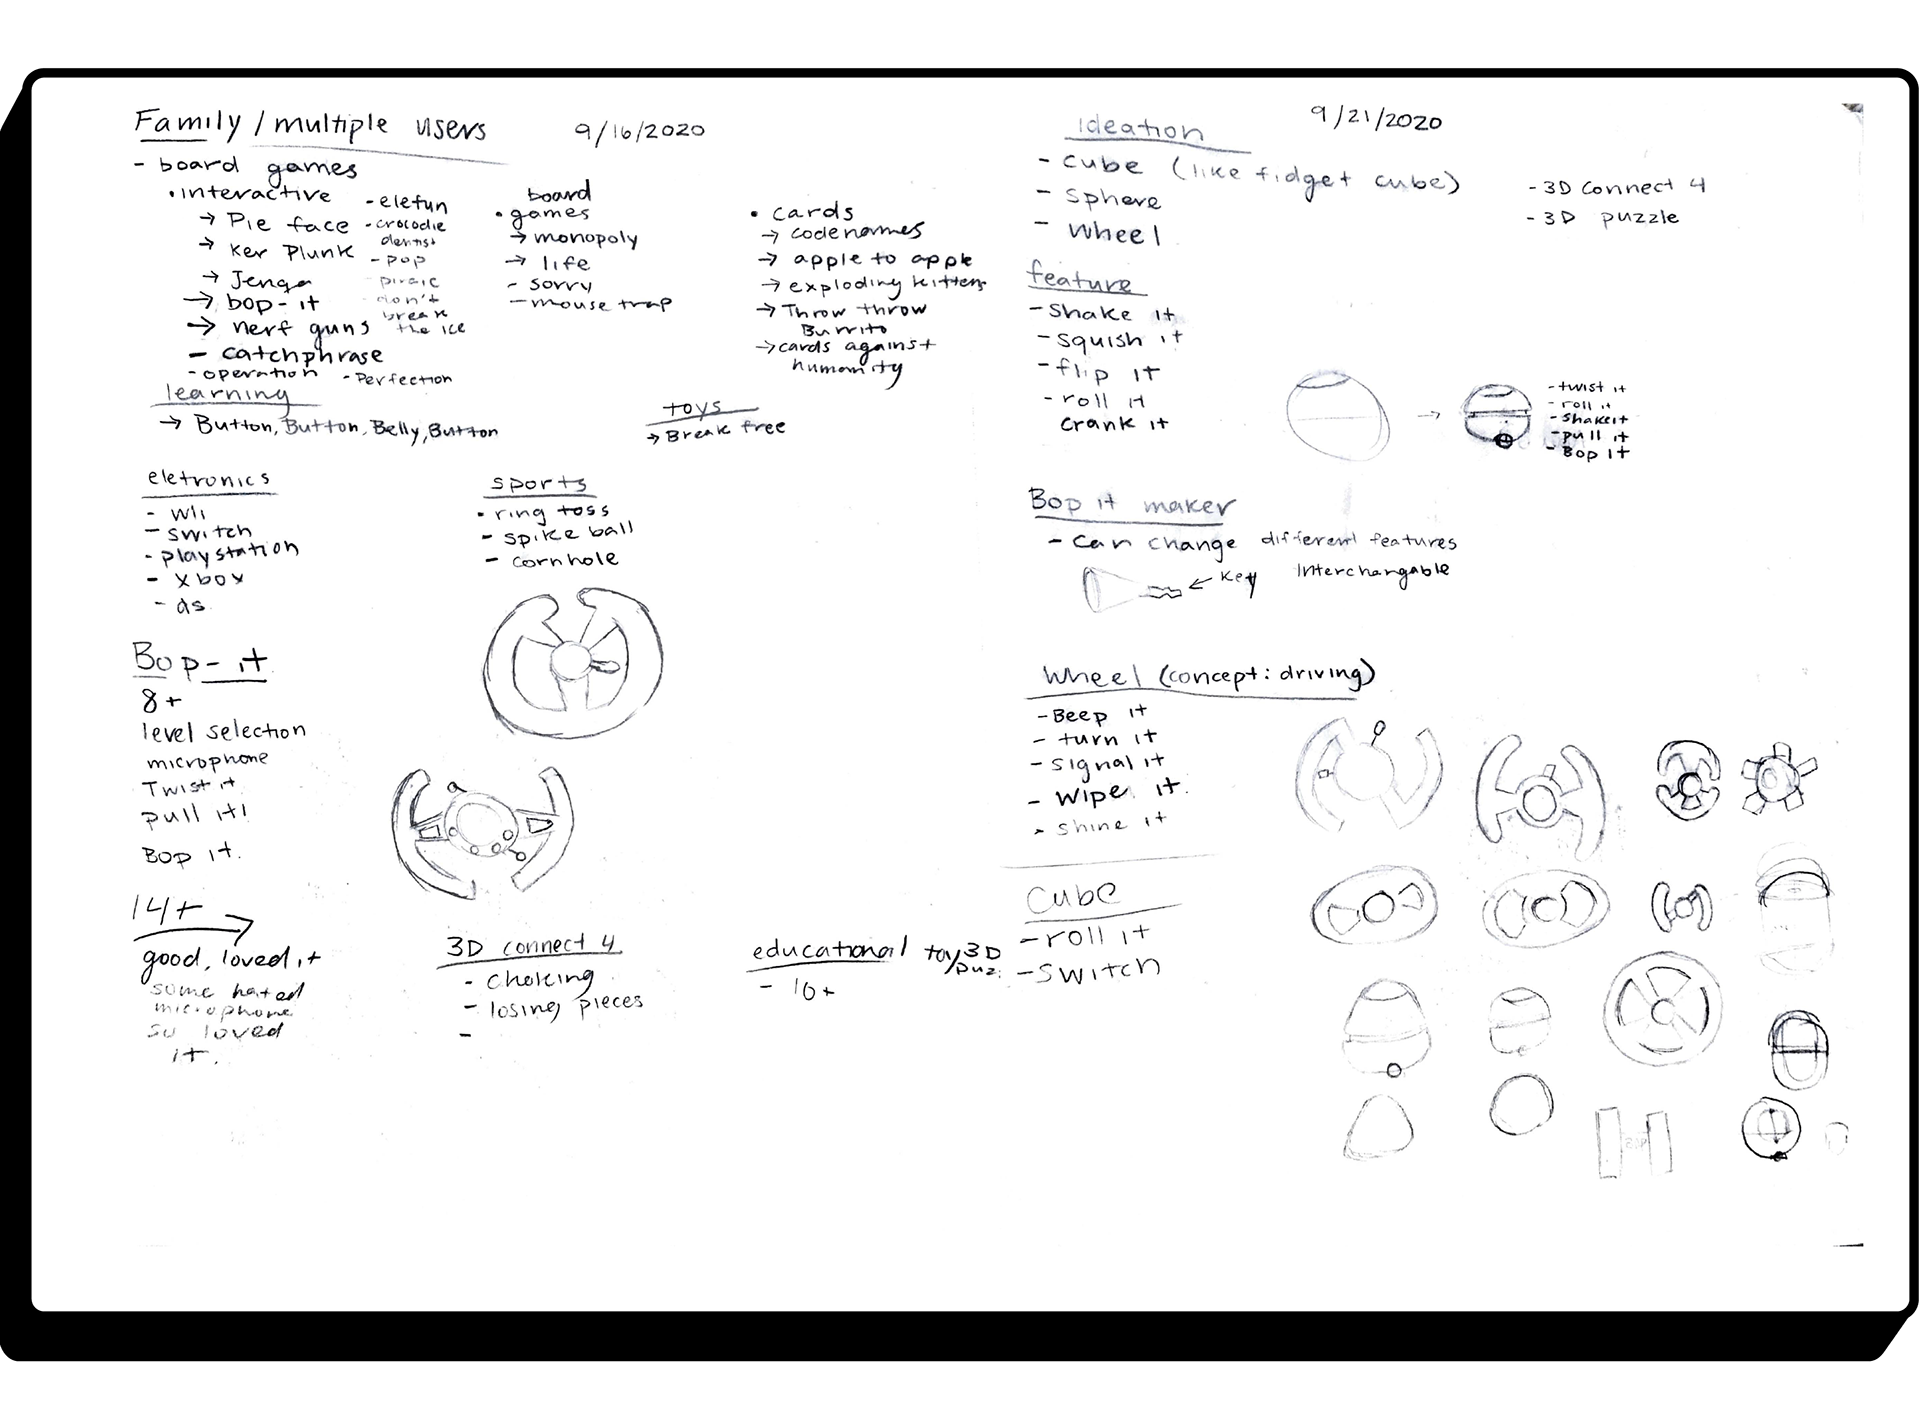 Family / multiple users
9/16/2020
- board games
• interactive
→ Pie face
→ Ker Plunk
→ Jenga
→ bop-it
→ nerf guns
- catchphrase
- operation
- Perfection
- elefun
- crocodie
dentist
- pop
pirate
- don't
break
the ice
board
• games
→ monopoly
→ life
- sorry
- mouse trap
• cards
→ codenames
→ apple to apple
→ exploding kittens
→ Throw throw
Burrito
→ cards against
humanity
learning
→ Button, Button, Belly, Button
toys
→ Break free
eletronics
- wii
- switch
- playstation
- xbox
- ds
sports
• ring toss
- spike ball
- cornhole
Bop-it
8+
level selection
microphone
Twist it
pull it!
Bop it.
14+
good, loved it
some hated
microphone
so loved
it.
3D connect 4
- choking
- losing pieces
-
educational toy/3D
puz.
- 10+
Ideation
9/21/2020
- cube (like fidget cube)
- sphere
- wheel
- 3D connect 4
- 3D puzzle
feature
- shake it
- squish it
- flip it
- roll it
crank it
- twist it
- roll it
- shake it
- pull it
- Bop it
Bop it maker
- can change different features
← key
Interchangable
Wheel (concept: driving)
- Beep it
- turn it
- signal it
- wipe it.
- shine it
Cube
- roll it
- switch
BOP